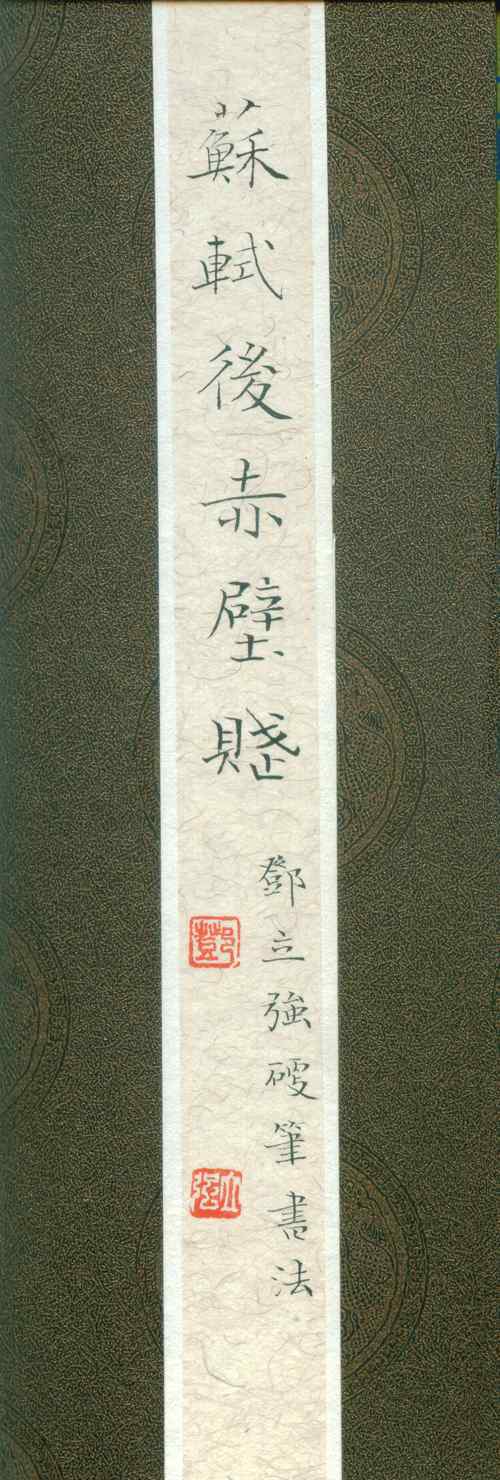 蘇軾後赤壁賦
鄧立強硬筆書法
鄧
立強